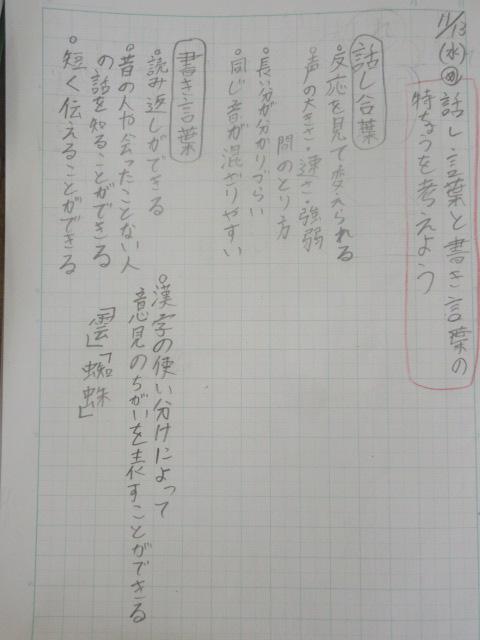 11/13(水)め 話し言葉と書き言葉の
特ちょうを考えよう
話し合葉
・反応を見て変えられる
・声の大きさ・速さ・強弱
間のとり方
・長い分が分かりづらい
・同じ音が混ざりやすい
書き言葉
・読み返しができる
・昔の人や会ったことない人
の話を知ることができる
・短く伝えることができる
・漢字の使い分けによって
意見のちがいを表すことができる
「雲」「蜘蛛」